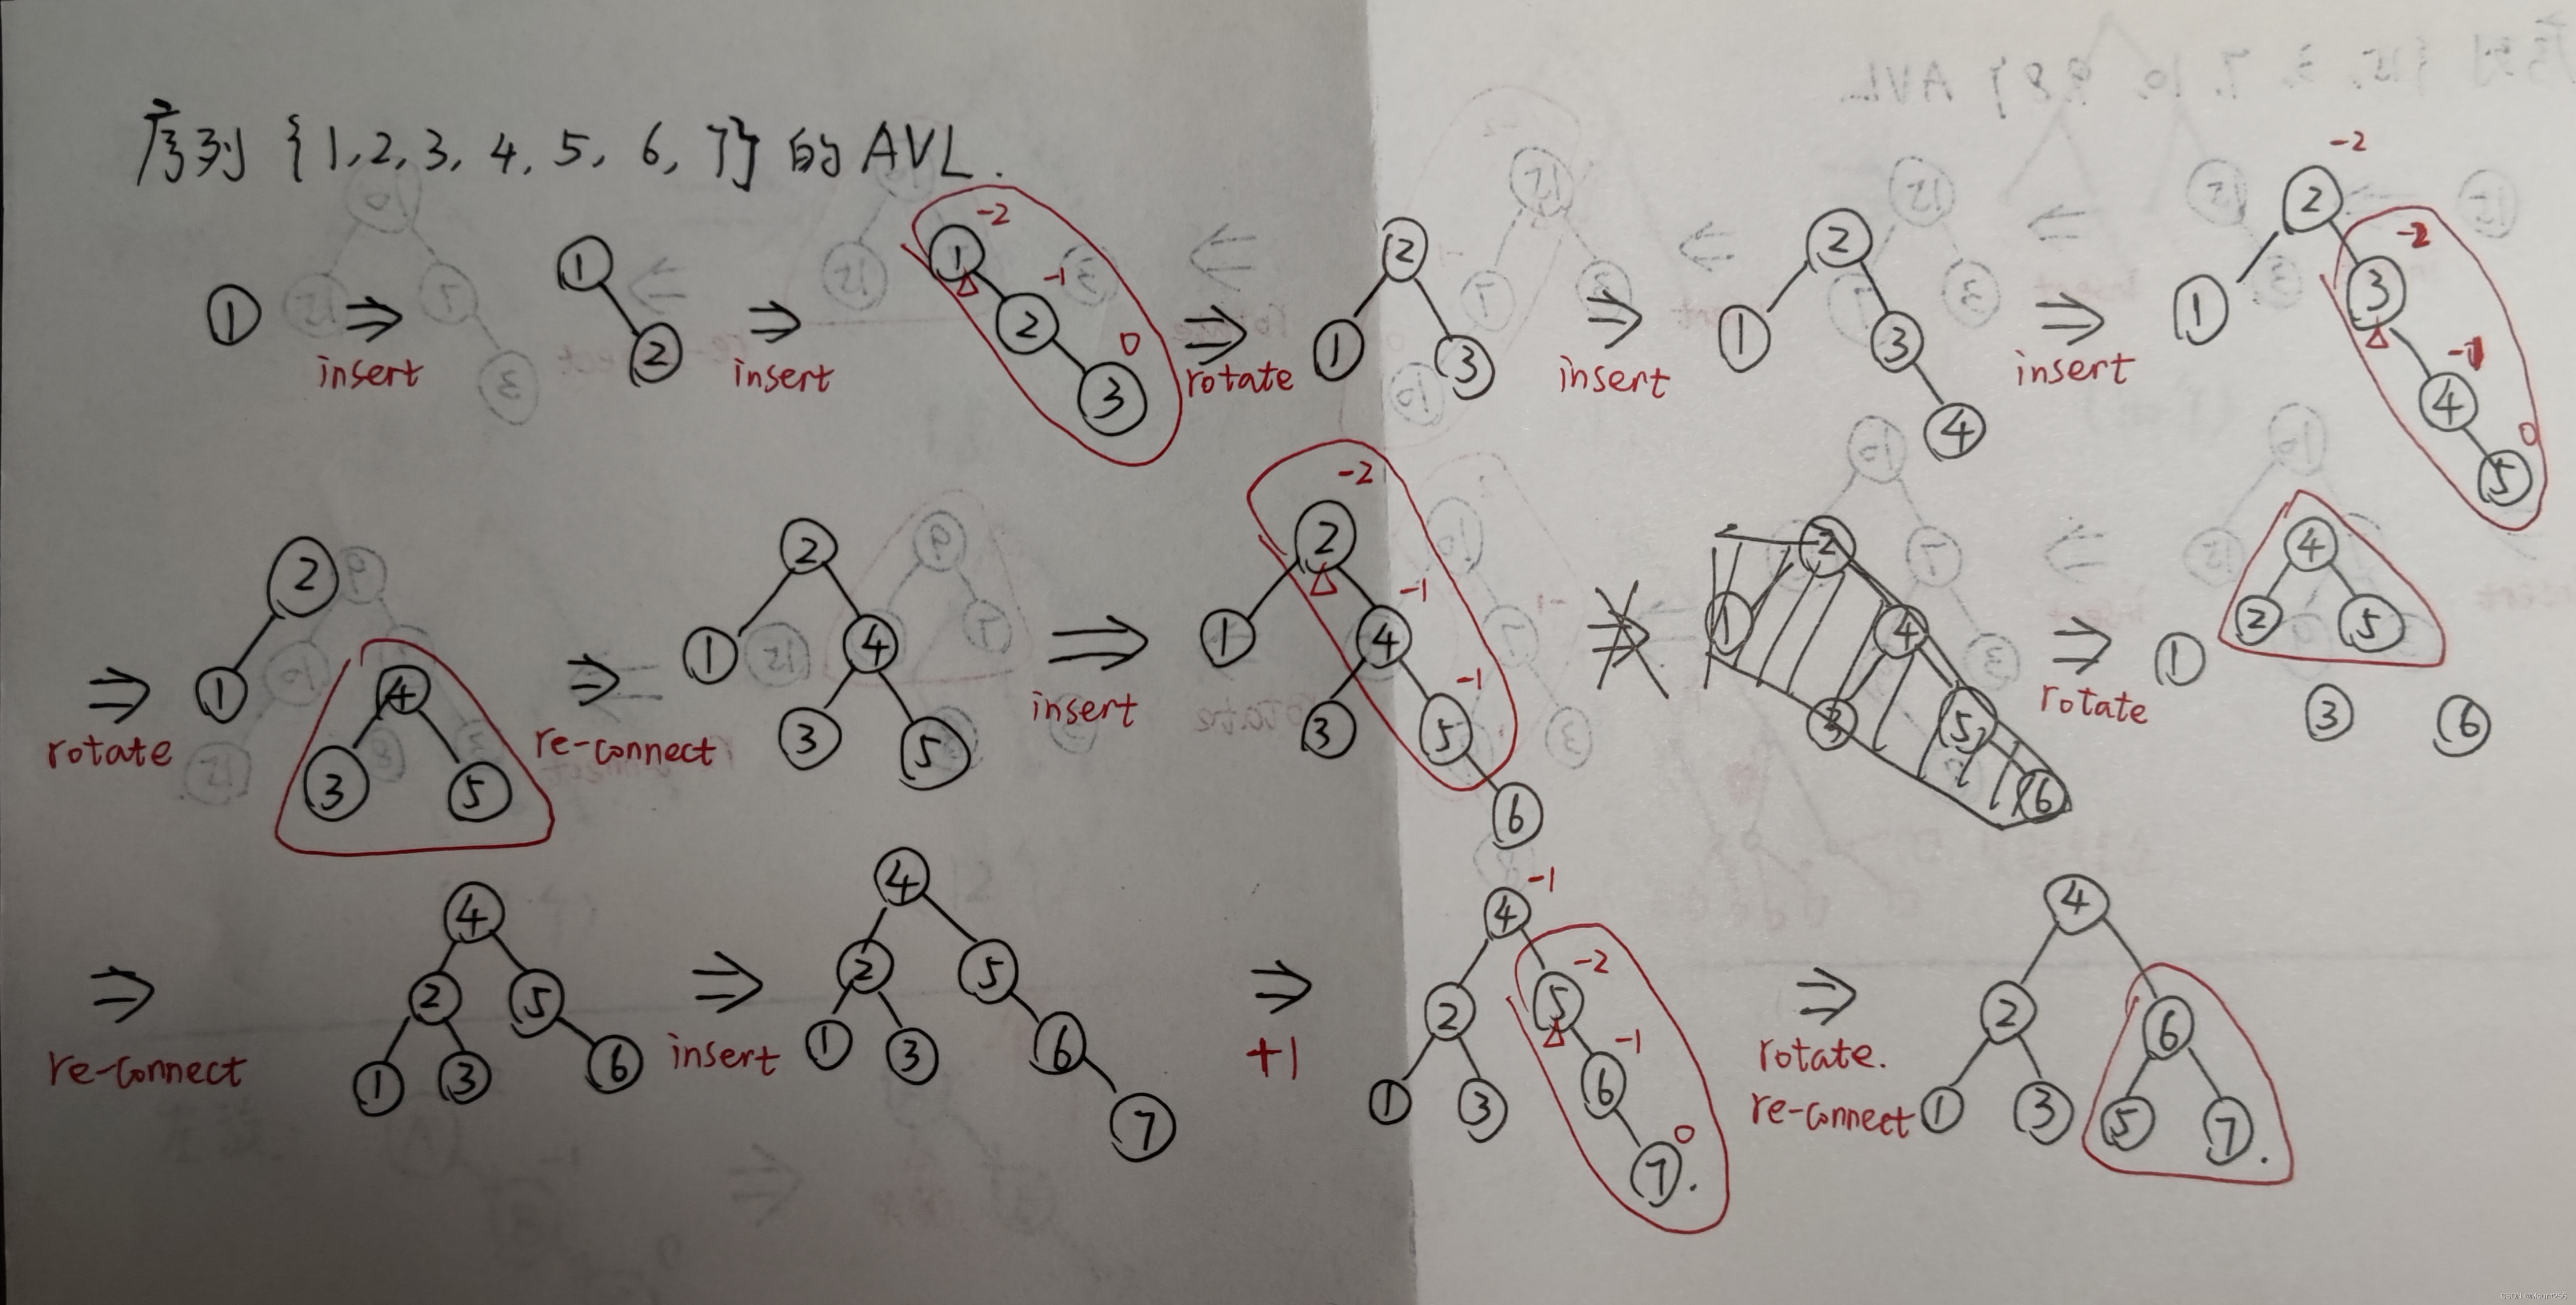 序列 {1, 2, 3, 4, 5, 6, 7} 的 AVL.
1 ⇒ insert 1 2 ⇒ insert 1 -2 2 -1 3 0 ⇒ rotate 2 1 3 ⇒ insert 2 1 3 4 ⇒ insert 2 -2 1 3 -2 4 -1 5 0
⇒ rotate 2 1 4 3 5 ⇒ re-connect 2 1 4 3 5 ⇒ insert 2 -2 1 4 -1 3 5 -1 6 ⇒ 2 1 4 3 5 6 ⇒ rotate 4 2 5 1 3 6
⇒ re-connect 4 2 5 1 3 6 ⇒ insert 4 2 5 1 3 6 7 ⇒ +1 4 -1 2 5 -2 1 3 6 -1 7 0 . ⇒ rotate. re-connect 4 2 6 1 3 5 7 .
CSDN @Mount256